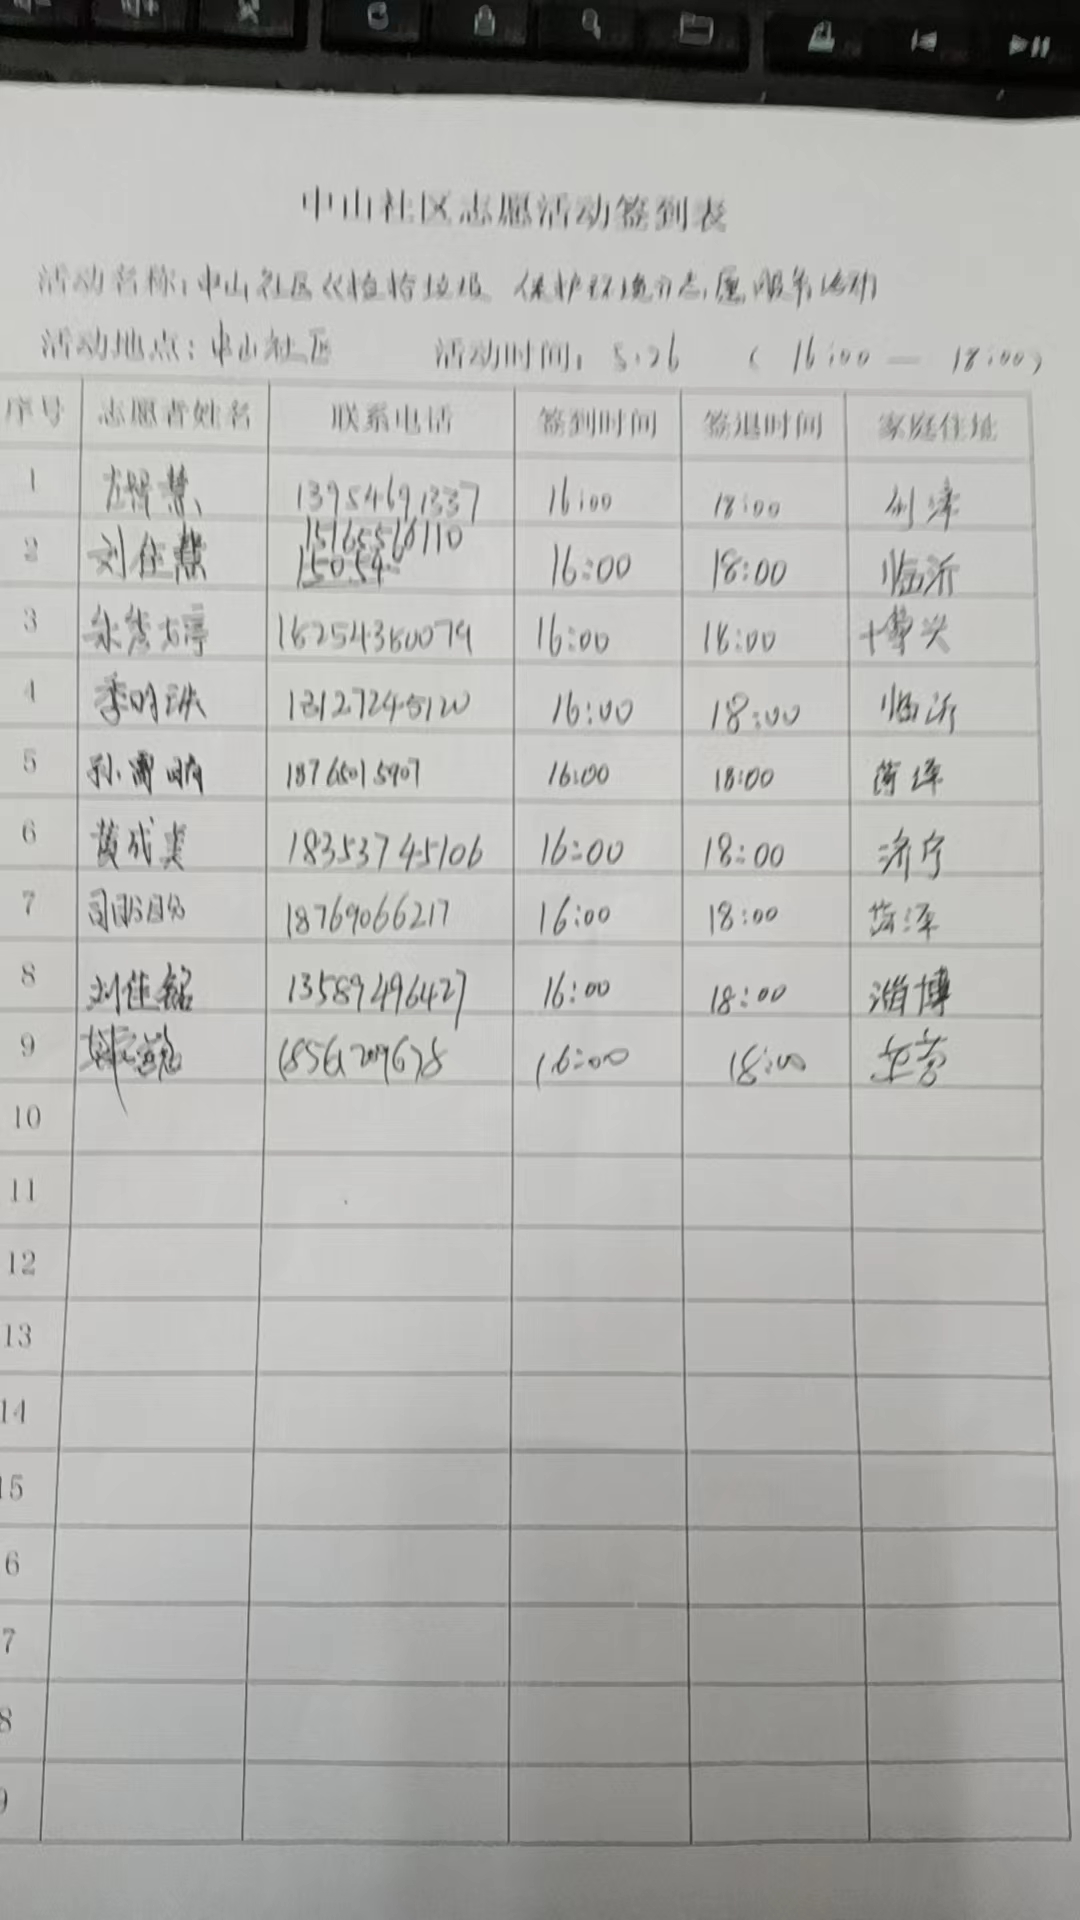 中山社区志愿活动签到表
活动名称:中山社区《捡拾垃圾 保护环境》志愿服务活动
活动地点:中山社区 活动时间:5.26 (16:00—18:00)
序号 志愿者姓名 联系电话 签到时间 签退时间 家庭住址
1 13954691337 16:00 18:00 利津
2 刘佳慧 15165516110 16:00 18:00 临沂
15054
3 16:00 18:00 博兴
4 16:00 18:00 临沂
5 18765015907 16:00 18:00 菏泽
6 黄成美 18353745106 16:00 18:00 济宁
7 18769066217 16:00 18:00 菏泽
8 刘佳铭 13589496427 16:00 18:00 淄博
9 16:00 18:00 东营
10
11
12
13
14
15
6
7
8
9